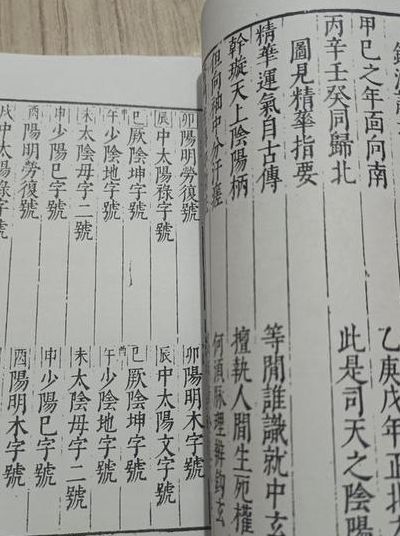 甲巳之年面向南
乙庚戊年正北
丙辛壬癸同歸北
此是司天之陰陽
圖見精華指要
精華運氣自古傳
等閒誰識就中玄
幹璇天上陰陽柄
擅執人間生死權
但向袖中分汗瘥
何須脉理辨鉤玄
卯陽明勞復號
辰中太陽祿字號
巳厥陰坤字號
午少陰地字號
未太陰母字二號
申少陽巳字號
酉陽明勞復號
戌中太陽祿字號
卯陽明木字號
辰中太陽文字號
巳厥陰坤字號
午少陰地字號
未太陰母字二號
申少陽巳字號
酉陽明木字號